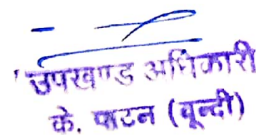 उपखण्ड अधिकारी
के. पाटन (बून्दी)